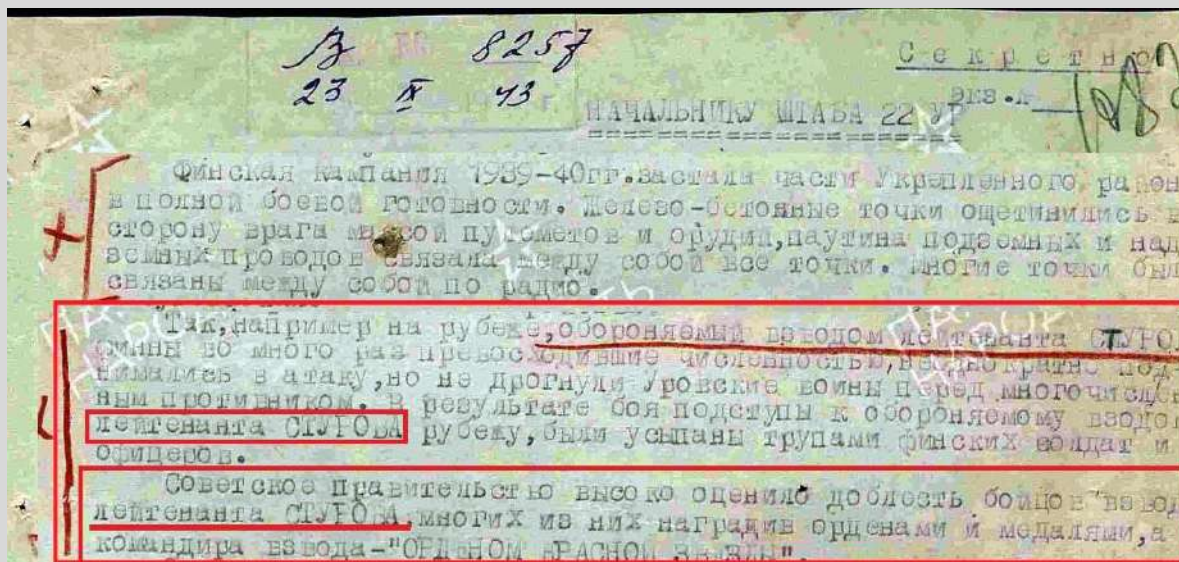 В 8257
23 IX 43 г.
Секретно
экз.№
НАЧАЛЬНИКУ ШТАБА 22 УР
Финская кампания 1939-40гг.застала части Укрепленного район
в полной боевой готовности. Железо-бетонные точки ощетинились в
сторону врага массой пулеметов и орудий,паутина подземных и над
земных проводов связала между собой все точки. Многие точки был
связаны между собой по радио.
Так,например на рубеже,обороняемый взводом лейтенанта СТУРО
финны во много раз превосходившие численностью,неоднократно под
нимались в атаку,но не дрогнули Уровские воины перед многочисле
ным противником. В результате боя подступы к обороняемому взводо
лейтенанта СТУРОВА рубежу,были усыпаны трупами финских солдат и
офицеров.
Советское правительство высоко оценило доблесть бойцов взвод
лейтенанта СТУРОВА,многих из них наградив орденами и медалями,а
командира взвода-"ОРДЕНОМ КРАСНОЙ ЗВЕЗДЫ".